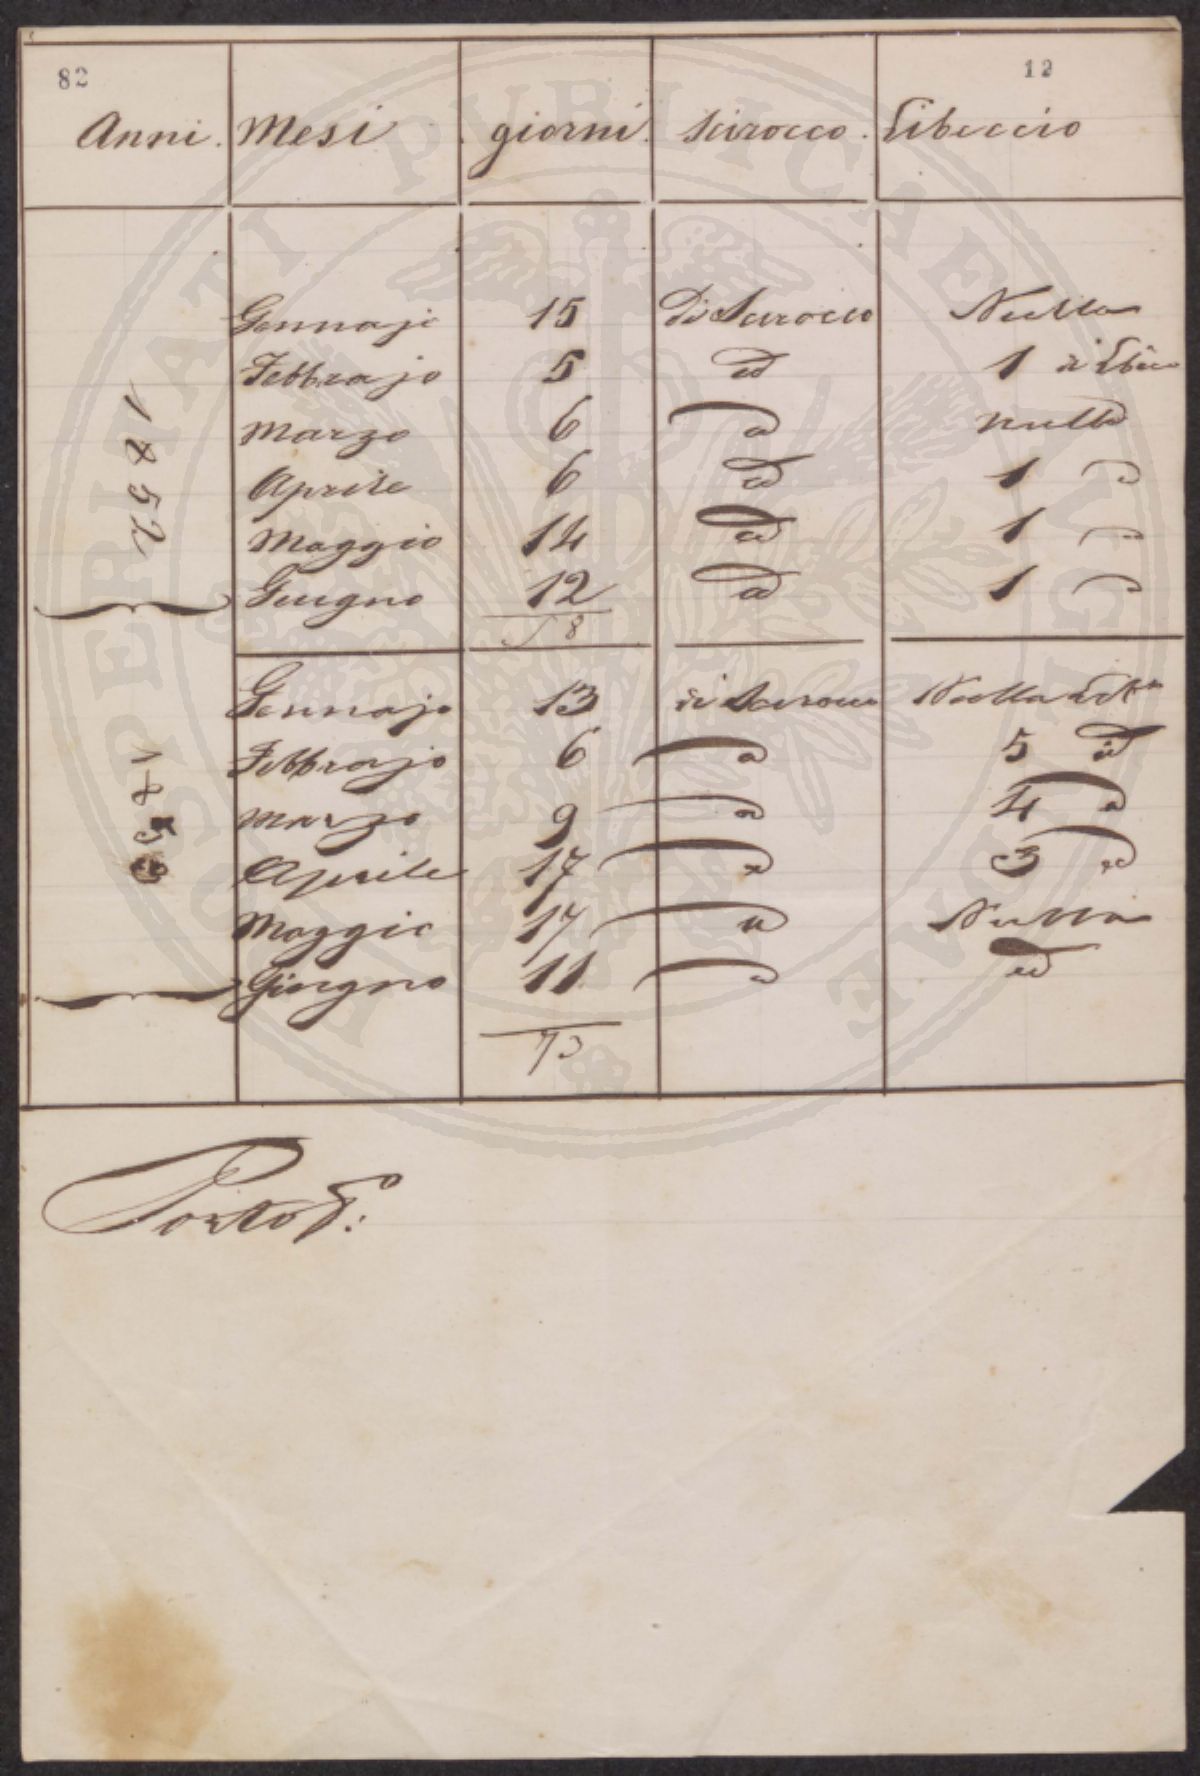 82 12
Anni. Mesi giorni. scirocco. Libeccio
1852
Gennajo 15 Di Scirocco Nulla
Febbrajo 5 id 1 di Libec
Marzo 6 id nulla
Aprile 6 id 1
Maggio 14 id 1
Giugno 12 id 1
58
1853
Gennajo 13 di Scirocco Nulla
Febbrajo 6 id 5 id
Marzo 9 id 4 id
Aprile 17 id 3 id
Maggio 17 id Nulla
Giugno 11 id id
73
Porto
PROSPERITATI PUBLICAE AUGENDAE